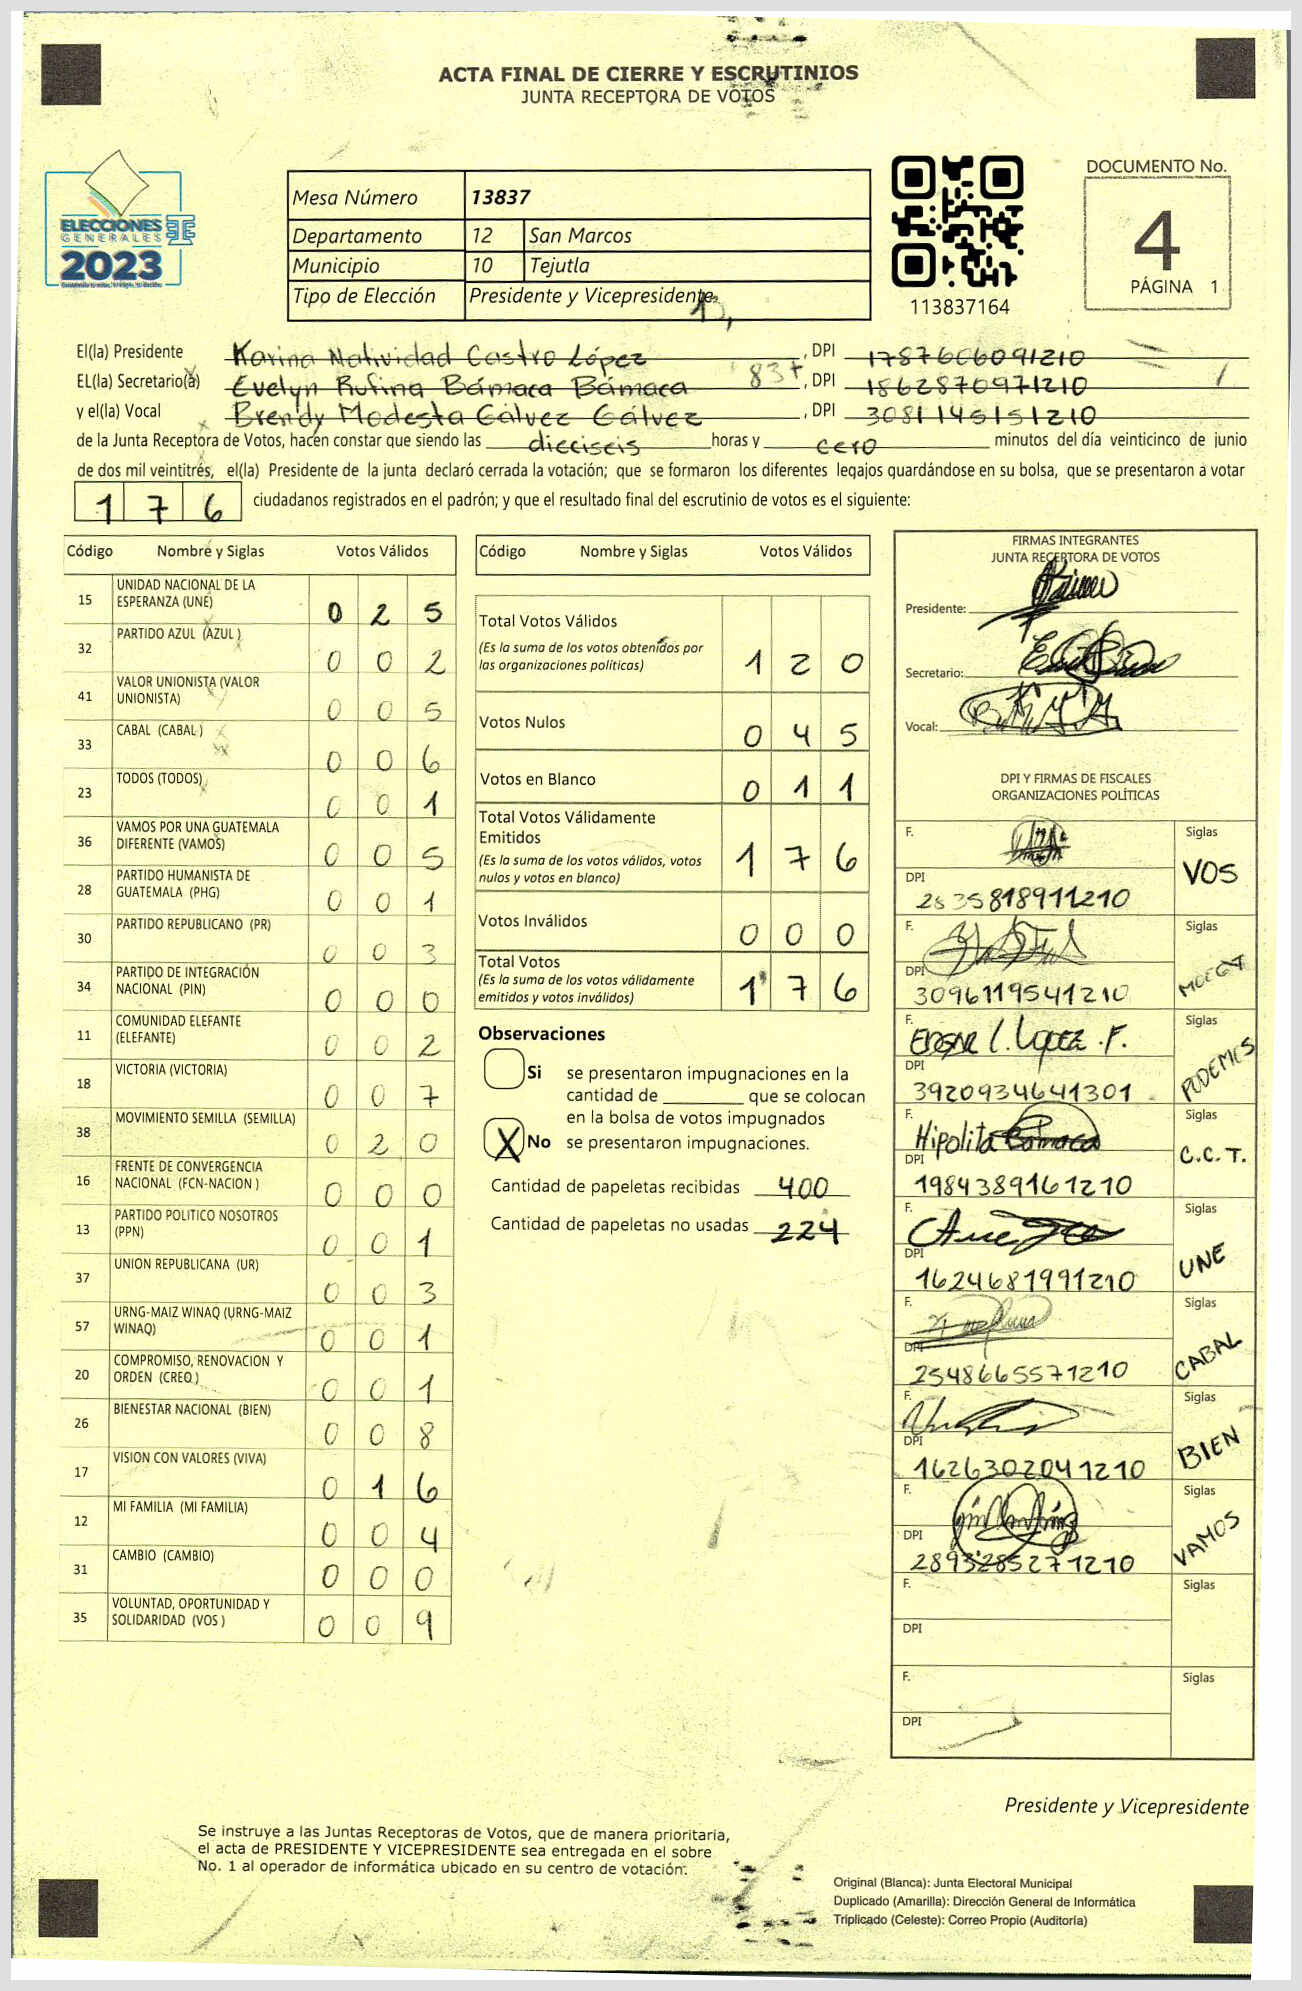 ACTA FINAL DE CIERRE Y ESCRUTINIOS
JUNTA RECEPTORA DE VOTOS
ELECCIONES
GENERALES
2023
Mesa Número 13837
Departamento 12 San Marcos
Municipio 10 Tejutla
Tipo de Elección Presidente y Vicepresidente
113837164
DOCUMENTO No.
4
PÁGINA 1
El(la) Presidente Karina Natividad Castro López, DPI 1787606091210
EL(la) Secretario(a) Evelyn Rufina Bámaca Bámaca 837, DPI 1862870971210
y el(la) Vocal Brendy Modesta Gálvez Gálvez, DPI 3081145151210
de la Junta Receptora de Votos, hacen constar que siendo las dieciseis horas y cero minutos del día veinticinco de junio
de dos mil veintitrés, el(la) Presidente de la junta declaró cerrada la votación; que se formaron los diferentes legajos quardándose en su bolsa, que se presentaron a votar
176 ciudadanos registrados en el padrón; y que el resultado final del escrutinio de votos es el siguiente:
Código Nombre y Siglas Votos Válidos
15 UNIDAD NACIONAL DE LA ESPERANZA (UNE) 0 2 5
32 PARTIDO AZUL (AZUL ) 0 0 2
41 VALOR UNIONISTA (VALOR UNIONISTA) 0 0 5
33 CABAL (CABAL ) 0 0 6
23 TODOS (TODOS) 0 0 1
36 VAMOS POR UNA GUATEMALA DIFERENTE (VAMOS) 0 0 5
28 PARTIDO HUMANISTA DE GUATEMALA (PHG) 0 0 1
30 PARTIDO REPUBLICANO (PR) 0 0 3
34 PARTIDO DE INTEGRACIÓN NACIONAL (PIN) 0 0 0
11 COMUNIDAD ELEFANTE (ELEFANTE) 0 0 2
18 VICTORIA (VICTORIA) 0 0 7
38 MOVIMIENTO SEMILLA (SEMILLA) 0 2 0
16 FRENTE DE CONVERGENCIA NACIONAL (FCN-NACION ) 0 0 0
13 PARTIDO POLITICO NOSOTROS (PPN) 0 0 1
37 UNION REPUBLICANA (UR) 0 0 3
57 URNG-MAIZ WINAQ (URNG-MAIZ WINAQ) 0 0 1
20 COMPROMISO, RENOVACION Y ORDEN (CREO ) 0 0 1
26 BIENESTAR NACIONAL (BIEN) 0 0 8
17 VISION CON VALORES (VIVA) 0 1 6
12 MI FAMILIA (MI FAMILIA) 0 0 4
31 CAMBIO (CAMBIO) 0 0 0
35 VOLUNTAD, OPORTUNIDAD Y SOLIDARIDAD (VOS ) 0 0 9
Código Nombre y Siglas Votos Válidos
Total Votos Válidos
(Es la suma de los votos obtenidos por
las organizaciones políticas) 1 2 0
Votos Nulos 0 4 5
Votos en Blanco 0 1 1
Total Votos Válidamente
Emitidos
(Es la suma de los votos válidos, votos
nulos y votos en blanco) 1 7 6
Votos Inválidos 0 0 0
Total Votos
(Es la suma de los votos válidamente
emitidos y votos inválidos) 1 7 6
Observaciones
Si se presentaron impugnaciones en la
cantidad de ________ que se colocan
en la bolsa de votos impugnados
X No se presentaron impugnaciones.
Cantidad de papeletas recibidas 400
Cantidad de papeletas no usadas 224
FIRMAS INTEGRANTES
JUNTA RECEPTORA DE VOTOS
Presidente:
Secretario:
Vocal:
DPI Y FIRMAS DE FISCALES
ORGANIZACIONES POLÍTICAS
F. Siglas VOS
DPI 2835818911210
F. Siglas
DPI 3096119541210
F. EDGAR L. LOPEZ .F. Siglas PODEMOS
DPI 3920934641301
F. Hipolita Bámaca Siglas C.C.T.
DPI 1984389161210
F. Siglas UNE
DPI 1624681991210
F. Siglas CABAL
DPI 2548665571210
F. Siglas BIEN
DPI 1626302041210
F. Siglas VAMOS
DPI 2893285271210
F. Siglas
DPI
F. Siglas
DPI
Presidente y Vicepresidente
Se instruye a las Juntas Receptoras de Votos, que de manera prioritaria,
el acta de PRESIDENTE Y VICEPRESIDENTE sea entregada en el sobre
No. 1 al operador de informática ubicado en su centro de votación.
Original (Blanca): Junta Electoral Municipal
Duplicado (Amarilla): Dirección General de Informática
Triplicado (Celeste): Correo Propio (Auditoría)